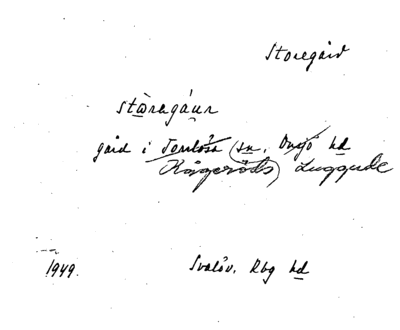 Storegård
stòragáur
gård i Torrlösa sn. Onsjö hd
Kågeröds Luggude
1949.
Svalöv. Rbg hd